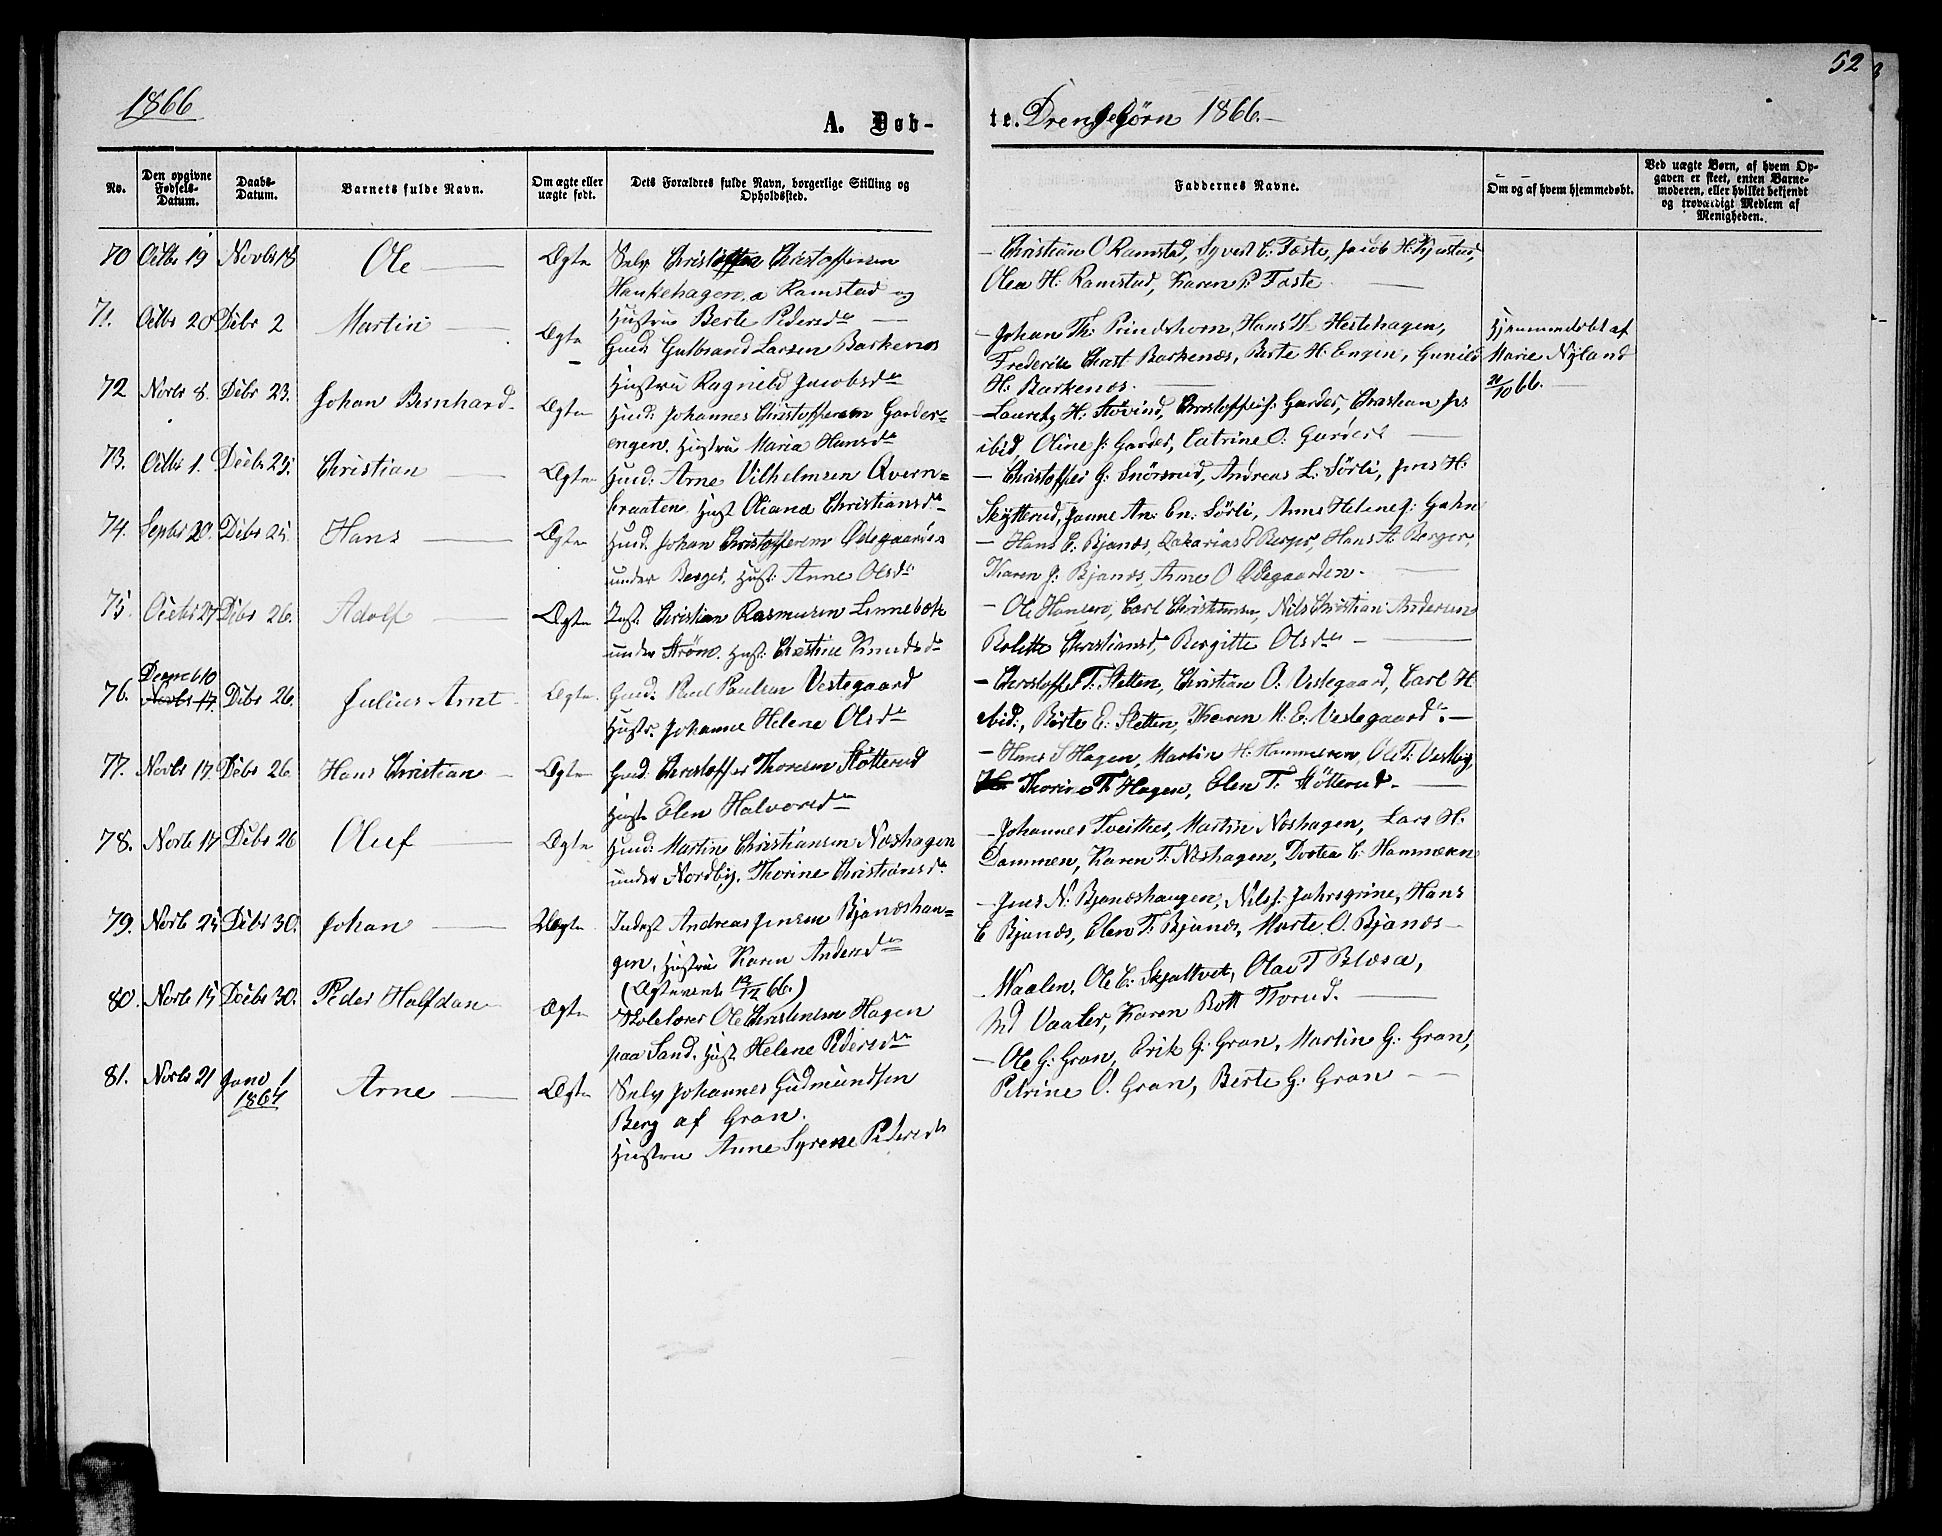 52
1866
A. Døb-
te. Drengebørn 1866.
No.
Den opgivne Fødsels-Datum.
Daabs-Datum.
Barnets fulde Navn.
Om ægte eller uægte født.
Dets Forældres fulde Navn, borgerlige Stilling og Opholdssted.
Faddernes Navne.
Om og af hvem hjemmedøbt.
Ved uægte Børn, af hvem Opgaven er skeet, enten Barnemoderen, eller hvilket bekjendt og troværdigt Medlem af Menigheden.
70 Octbr 19 Novbr 18 Ole Ægte Selv Christoffer Christoffersen
Haukehagen a Ramstad og
Hustru Berte Pedersdr
Christian O Ramstad, Syver C. Faste, Jacob H.
Olea H. Ramstad, Karen P. Faste
71. Octbr 20 Dcbr 2 Martin Ægte
Gulbrand Larsen Barkenæs
Hustru Ragnild Jacobsdr
Johan Th: Prindshorn, Hans Hestehagen,
Frederik Christ Barkenæs, Berte H. Engen, Gunild
H: Barkenæs.
Hjemmedøbt af
Marie Nyland
20/10 66.
72 Novbr 8. Dcbr 23. Johan Bernhard Ægte
Huusm: Johannes Christoffersen Garder-
engen. Hustru Maria Hansdr
Lauritz H: Støvind, Christoffer J: Garder, Christian Js:
ibid, Oline J: Garder, Catrine O: Garder
73. Octbr 1. Decbr 25. Christian Ægte
Arne Vilhelmsen Qvern-
braaten. Hust Oliana Christiansdr
Christoffer G: Snörsrud, Andreas L: Sörli, Jens H:
Skytterud, Janne An: En: Sörli, Anne Helene J: Gahn
74. Septbr 20. Dcbr 25 Hans Ægte
Johan Christoffersen Ødegaarden
under Berger, Hust: Anne Olsdr
Hans E. Bjanæs, Zakarias Berger, Hans A. Berger,
Karen J: Bjanæs, Anne O Ødegaarden.
75. Octbr 27 Dcbr 26. Adolf Ægte
Christian Rasmusen Linnebæk
under Strøm. Hust: Christine Knudsdr
Ole Hansen, Carl Christiansen, Nils Christian Andersen
Bolette Christiansdr, Bergitte Olsdr
76. Decmb 10
Novbr 17. Dcbr 26. Julius Arnt Ægte
Poul Paulsen Vestegaard
Hustr. Johanne Helene Olsdr
Christoffer T: Sletten, Christian O: Vestegaard, Carl H
ibid:, Berte E: Sletten, Karen M. E: Vestegaard.
77. Novbr 17. Dcbr 26. Hans Christian Ægte
Christoffer Thoresen Støtterud
Hust. Elen Halvorsdr
Hans S Hagen, Martin H. Hammeren, Ole T. Vestby,
Thorine T. Hagen, Elen T. Støtterud.
78. Novb 17 Dcbr 26 Oluf Ægte
Martin Christiansen Næshagen
under Nordby. Thorine Christiansdr
Johannes Tveither, Martin Næshagen, Lars H.
Dammen, Karen T: Næshagen, Dortea C: Hammeren
79. Novb 25 Dcbr 30. Johan Ægte
Inderst Andreas Jensen Bjanæshau-
gen. Hustru Karen Andersdr
(Ægteviet 12/12 66.)
Jens N: Bjanæshaugen, Nils J. Jahrsgrine, Hans
E Bjanæs, Elen T. Bjanæs, Marte O. Bjanæs
80. Novb 15 Decbr 30. Peder Halfdan Ægte
Skolelærer Ole Christensen Hagen
paa Sand. Hust Helene Pedersdr
Waalen, Ole C: Skjattvet, Olav T Blæsa,
Vaaler, Karen Bott Thorud.
81. Novbr 21 Janv 1
1867 Arne Ægte
Selv Johannes Gudmundsen
Berg af Gran.
Hustru Anne Syrene Pedersdr
Ole G: Gran, Erik G: Gran, Martin G: Gran,
Petrine O. Gran, Berte G: Gran